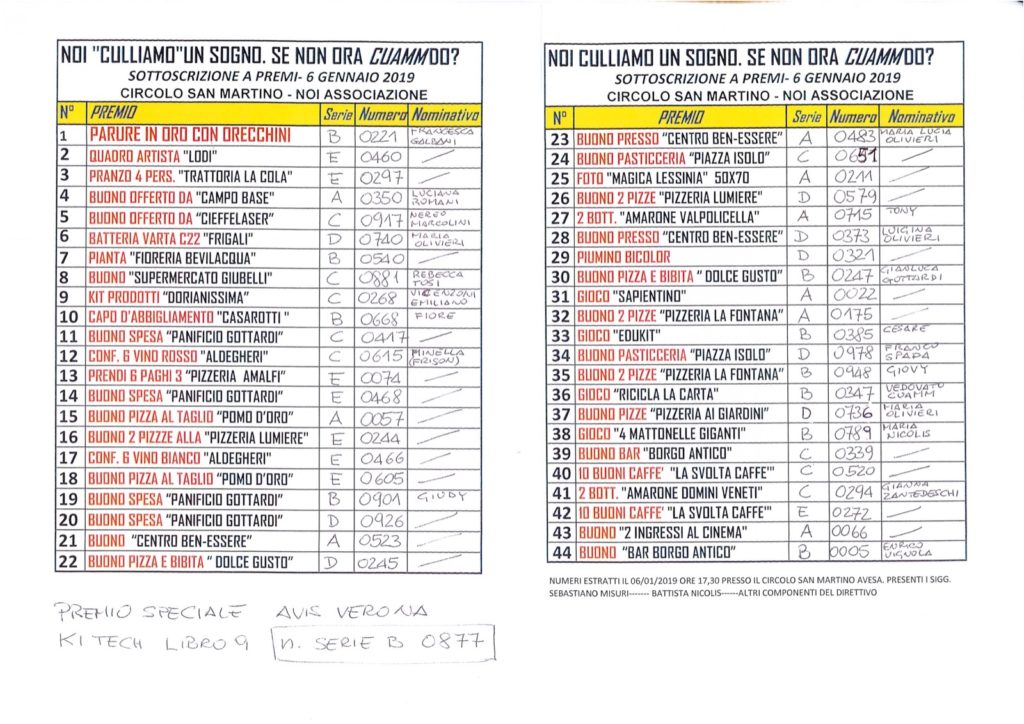 NOI "CULLIAMO"UN SOGNO. SE NON ORA CUAMMDO?
SOTTOSCRIZIONE A PREMI- 6 GENNAIO 2019
CIRCOLO SAN MARTINO - NOI ASSOCIAZIONE
N° PREMIO Serie Numero Nominativo
1 PARURE IN ORO CON ORECCHINI B 0221 FRANCESCA GALBANI
2 QUADRO ARTISTA "LODI" E 0460
3 PRANZO 4 PERS. "TRATTORIA LA COLA" E 0297
4 BUONO OFFERTO DA "CAMPO BASE" A 0350 LUCIANA ROMANI
5 BUONO OFFERTO DA "CIEFFELASER" C 0917 NEREO MARCOLINI
6 BATTERIA VARTA C22 "FRIGALI" D 0740 MARIA OLIVIERI
7 PIANTA "FIORERIA BEVILACQUA" B 0540
8 BUONO "SUPERMERCATO GIUBELLI" C 0881 REBECCA TOSI
9 KIT PRODOTTI "DORIANISSIMA" C 0268 VICENZONI EMILIANO
10 CAPO D'ABBIGLIAMENTO "CASAROTTI " B 0668 FIORE
11 BUONO SPESA "PANIFICIO GOTTARDI" C 0417
12 CONF. 6 VINO ROSSO "ALDEGHERI" C 0615 MINELLA (FRISON)
13 PRENDI 6 PAGHI 3 "PIZZERIA AMALFI" E 0074
14 BUONO SPESA "PANIFICIO GOTTARDI" E 0468
15 BUONO PIZZA AL TAGLIO "POMO D'ORO" A 0057
16 BUONO 2 PIZZZE ALLA "PIZZERIA LUMIERE" E 0244
17 CONF. 6 VINO BIANCO "ALDEGHERI" E 0466
18 BUONO PIZZA AL TAGLIO "POMO D'ORO" E 0605
19 BUONO SPESA "PANIFICIO GOTTARDI" B 0901 GIUDY
20 BUONO SPESA "PANIFICIO GOTTARDI" D 0926
21 BUONO "CENTRO BEN-ESSERE" A 0523
22 BUONO PIZZA E BIBITA " DOLCE GUSTO" D 0245
PREMIO SPECIALE AVIS VERONA
KI TECH LIBRO 9 n. SERIE B 0877
NOI CULLIAMO UN SOGNO. SE NON ORA CUAMMDO?
SOTTOSCRIZIONE A PREMI- 6 GENNAIO 2019
CIRCOLO SAN MARTINO - NOI ASSOCIAZIONE
N° PREMIO Serie Numero Nominativo
23 BUONO PRESSO "CENTRO BEN-ESSERE" A 0483 MARIA LUCIA OLIVIERI
24 BUONO PASTICCERIA "PIAZZA ISOLO" C 0651
25 FOTO "MAGICA LESSINIA" 50X70 A 0211
26 BUONO 2 PIZZE "PIZZERIA LUMIERE" D 0579
27 2 BOTT. "AMARONE VALPOLICELLA" A 0715 TONY
28 BUONO PRESSO "CENTRO BEN-ESSERE" D 0373 LUIGINA OLIVIERI
29 PIUMINO BICOLOR D 0321
30 BUONO PIZZA E BIBITA " DOLCE GUSTO" B 0247 GIANLUCA GOTTARDI
31 GIOCO "SAPIENTINO" A 0022
32 BUONO 2 PIZZE "PIZZERIA LA FONTANA" A 0175
33 GIOCO "EDUKIT" B 0385 CESARE
34 BUONO PASTICCERIA "PIAZZA ISOLO" D 0978 FRANCO SPADA
35 BUONO 2 PIZZE "PIZZERIA LA FONTANA" B 0948 GIOVY
36 GIOCO "RICICLA LA CARTA" B 0347 VEDOVATO CUAMM
37 BUONO PIZZE "PIZZERIA AI GIARDINI" D 0736 MARIA OLIVIERI
38 GIOCO "4 MATTONELLE GIGANTI" B 0789 MARIA NICOLIS
39 BUONO BAR "BORGO ANTICO" C 0339
40 10 BUONI CAFFE' "LA SVOLTA CAFFE'" C 0520
41 2 BOTT. "AMARONE DOMINI VENETI" C 0294 GIANNA ZANTEDESCHI
42 10 BUONI CAFFE' "LA SVOLTA CAFFE'" E 0272
43 BUONO "2 INGRESSI AL CINEMA" A 0066
44 BUONO "BAR BORGO ANTICO" B 0005 ENRICO VIGNOLA
NUMERI ESTRATTI IL 06/01/2019 ORE 17,30 PRESSO IL CIRCOLO SAN MARTINO AVESA. PRESENTI I SIGG.
SEBASTIANO MISURI------- BATTISTA NICOLIS------ALTRI COMPONENTI DEL DIRETTIVO